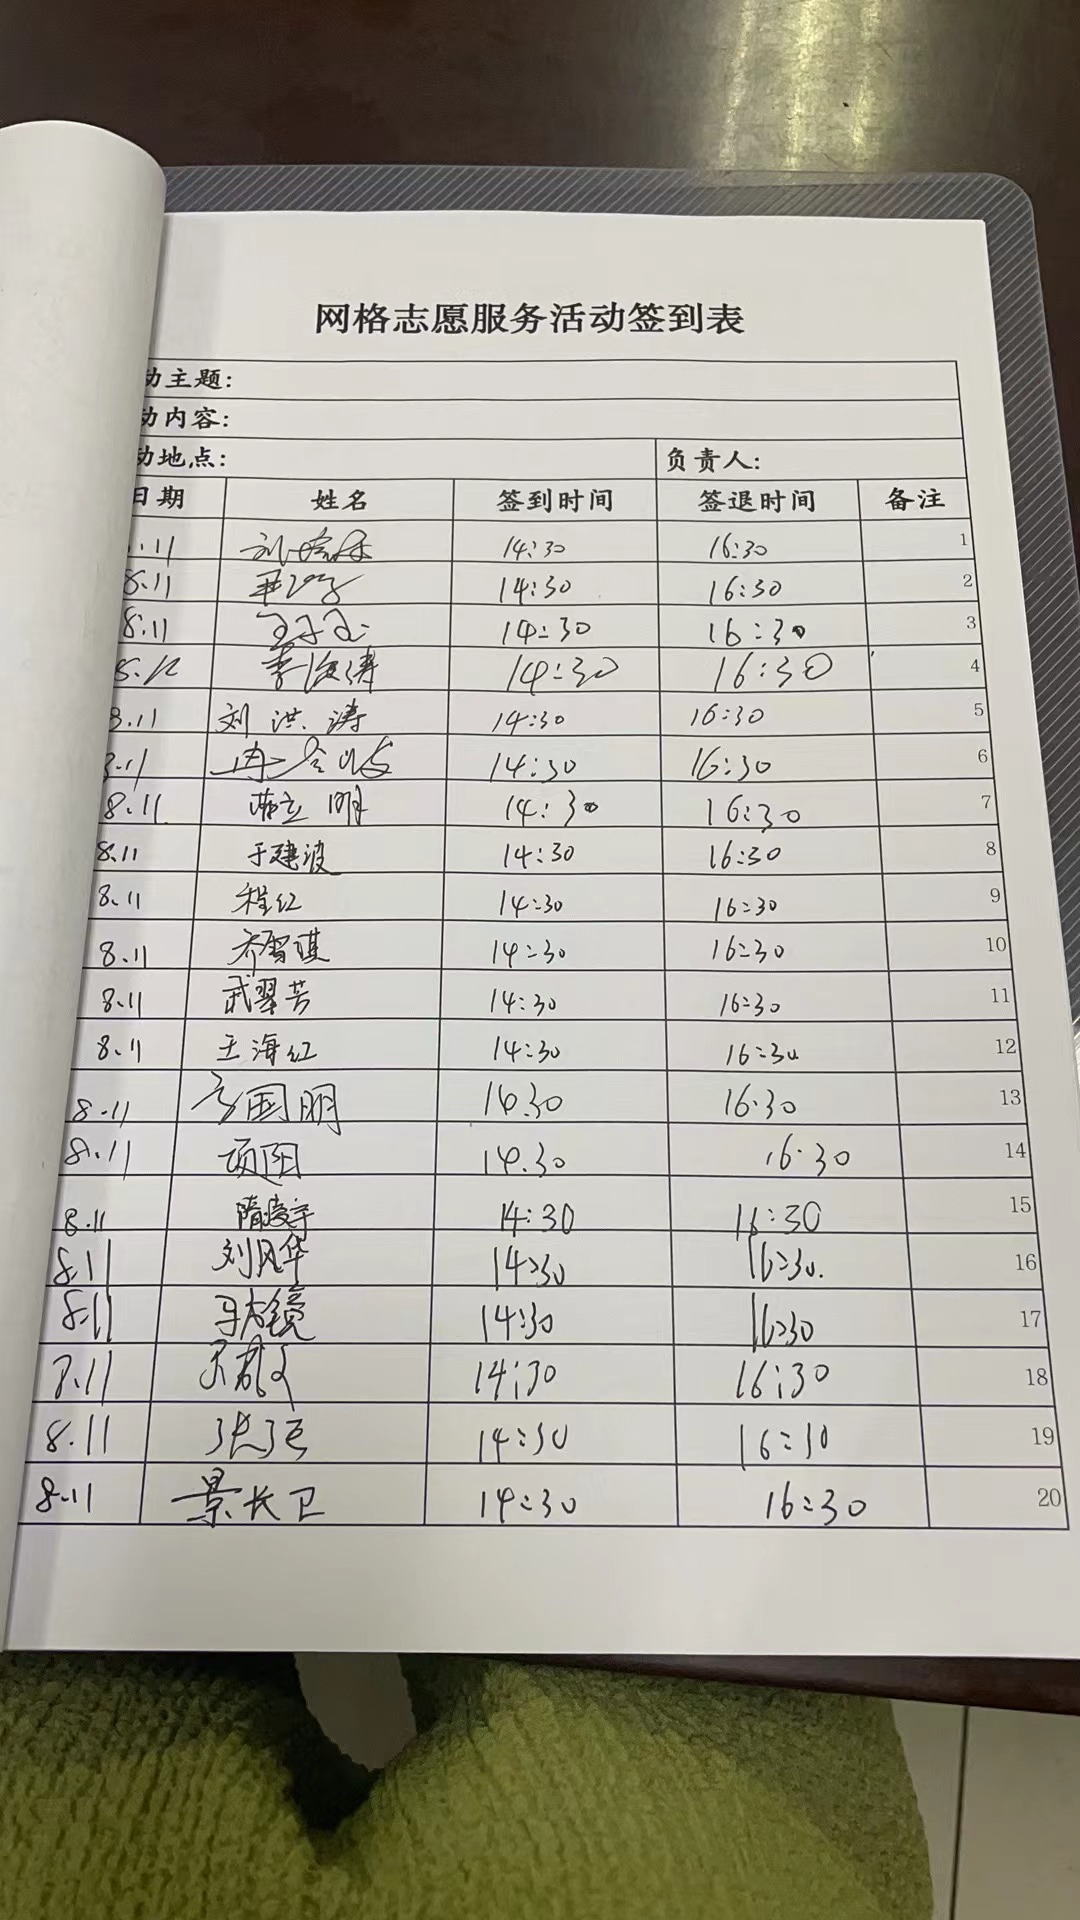 网格志愿服务活动签到表
动主题：
动内容：
动地点： 负责人：
日期 姓名 签到时间 签退时间 备注
.11 14:30 16:30 1
8.11 14:30 16:30 2
8.11 14:30 16:30 3
李俊涛 14:30 16:30 4
8.11 刘洪涛 14:30 16:30 5
14:30 16:30 6
8.11 立明 14:30 16:30 7
8.11 于建波 14:30 16:30 8
8.11 程红 14:30 16:30 9
8.11 乔智琪 14:30 16:30 10
8.11 武翠芳 14:30 16:30 11
8.11 王海红 14:30 16:30 12
8.11 国明 14.30 16.30 13
8.11 阳 14.30 16.30 14
8.11 隋 宇 14:30 16:30 15
8.11 刘凤华 14:30 16:30. 16
8.11 镜 14:30 16:30 17
8.11 14:30 16:30 18
8.11 14:30 16:30 19
8.11 景长卫 14:30 16:30 20